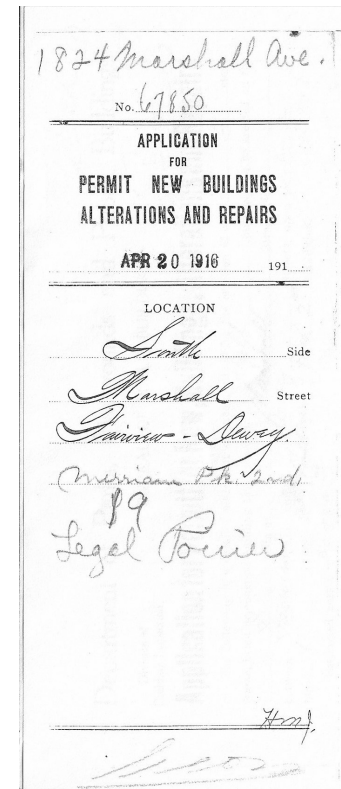 1824 Marshall Ave.
No. 67850
APPLICATION
FOR
PERMIT NEW BUILDINGS
ALTERATIONS AND REPAIRS
APR 20 1916 191
LOCATION
South Side
Marshall Street
Fairview - Dewey.
Merriam Pk. 2nd,
19
Legal Porrier